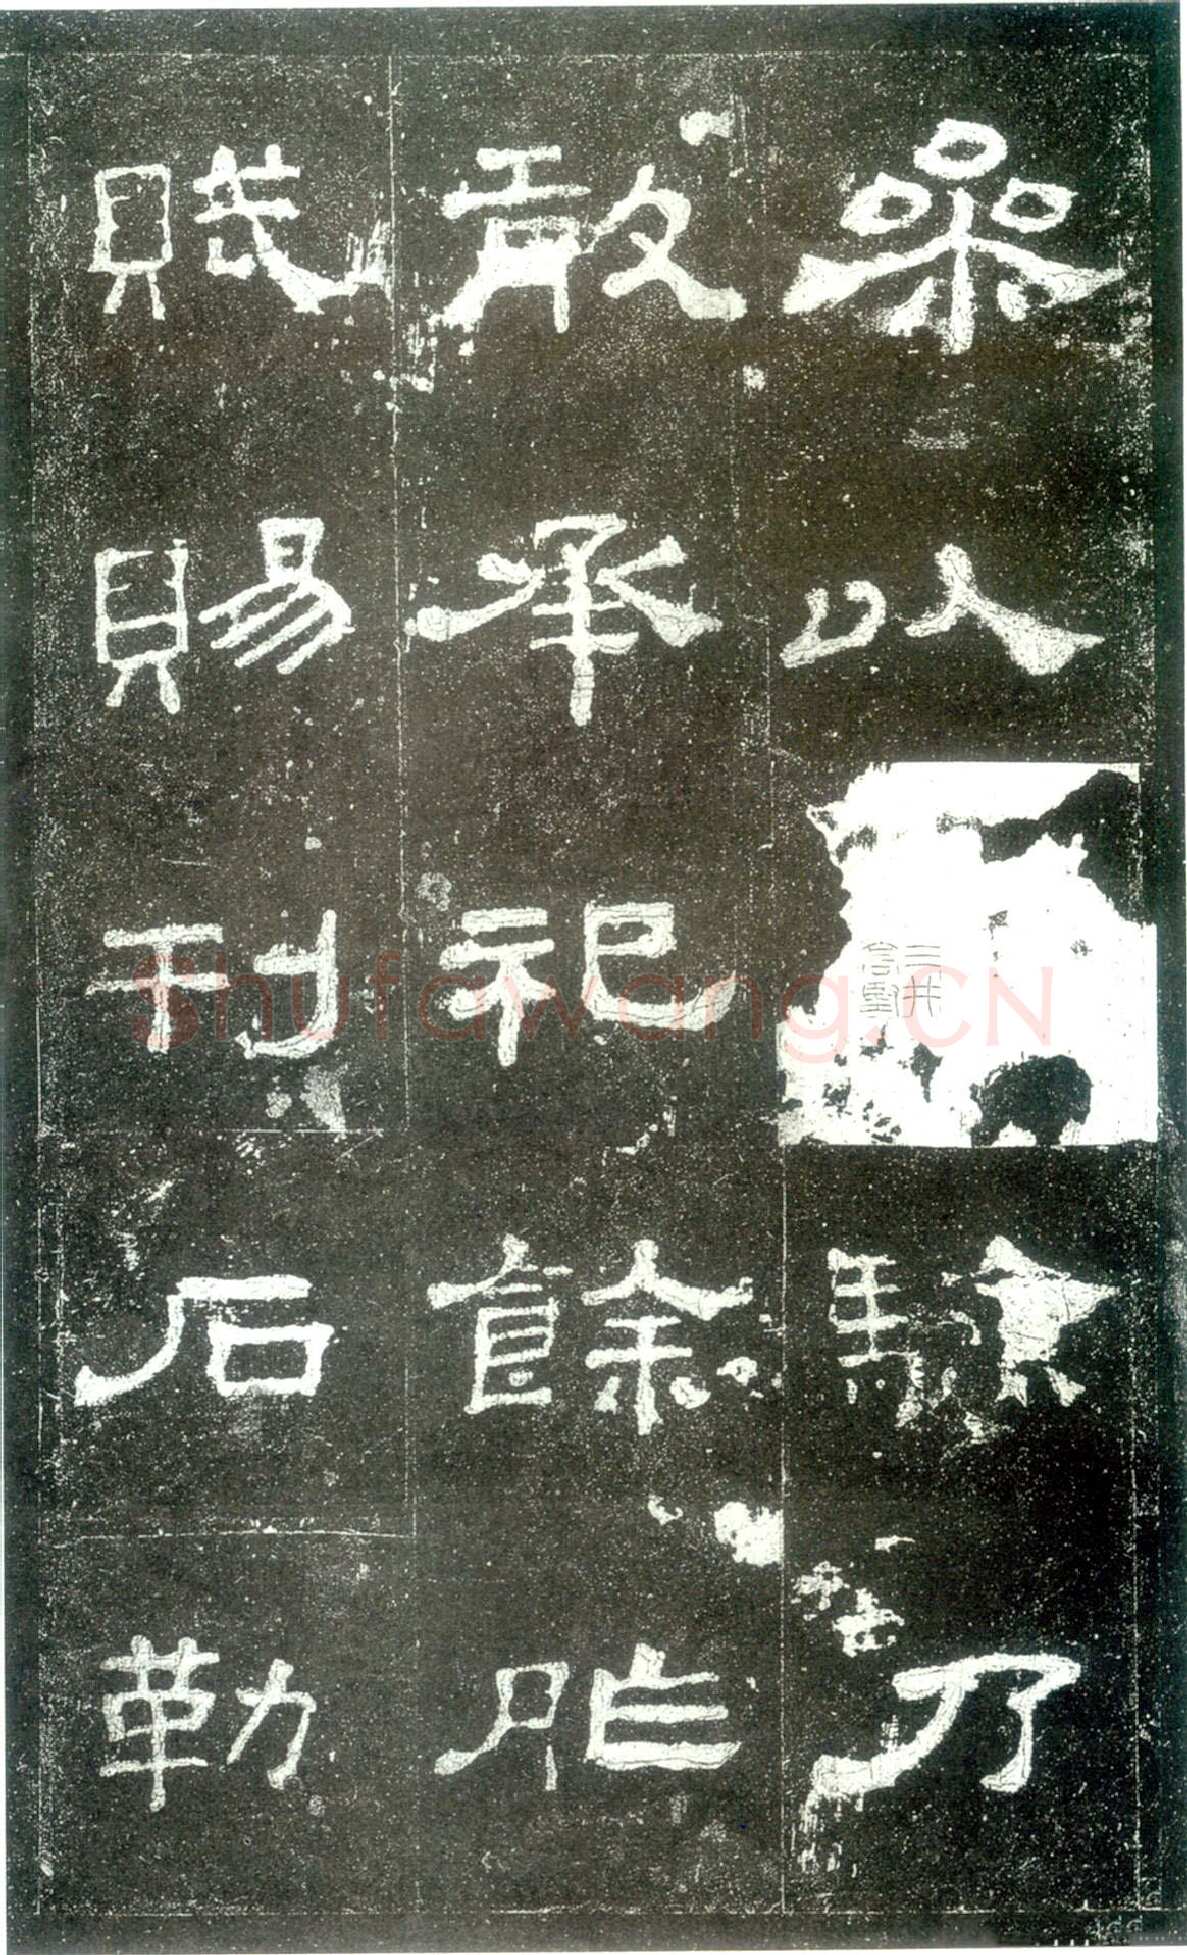 參以驗乃
敢承祀餘胙
賦賜刊石勒
三井
高堅
Shufawang.CN